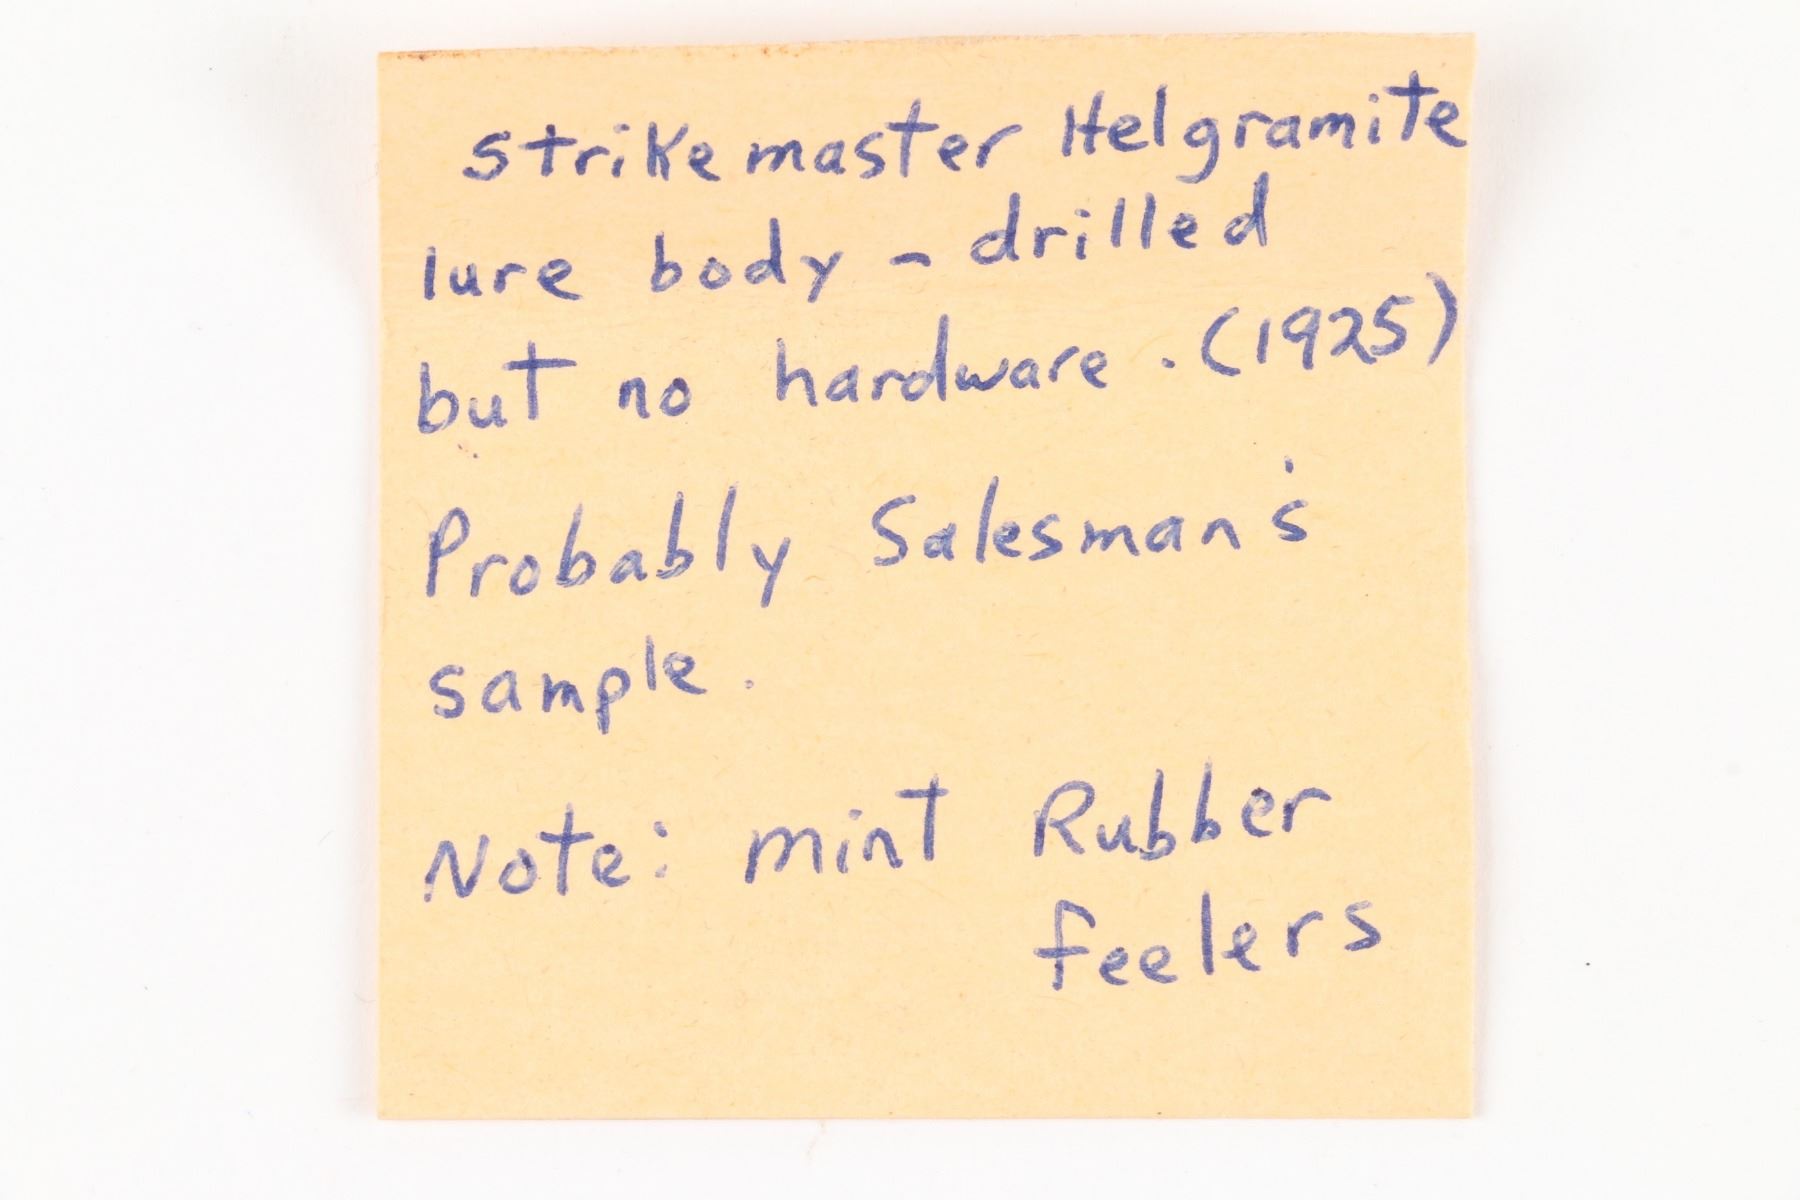 Strikemaster Helgramite
lure body - drilled
but no hardware. (1925)
Probably Salesman's
sample.
Note: mint Rubber
feelers